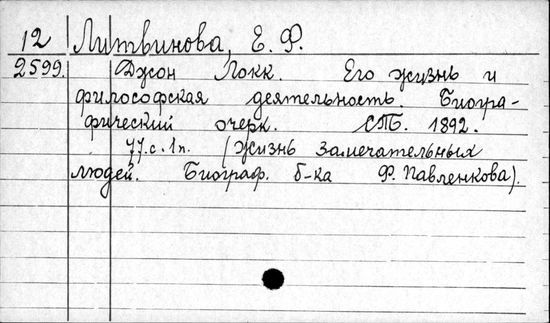 12 Литвинова, Е. Ф.
2599. Джон Локк. Его жизнь и
философская деятельность. Биогра-
фический очерк. СПб. 1892.
77.с. 1п. (Жизнь замечательных
людей. Биограф. б-ка Ф. Павленкова).